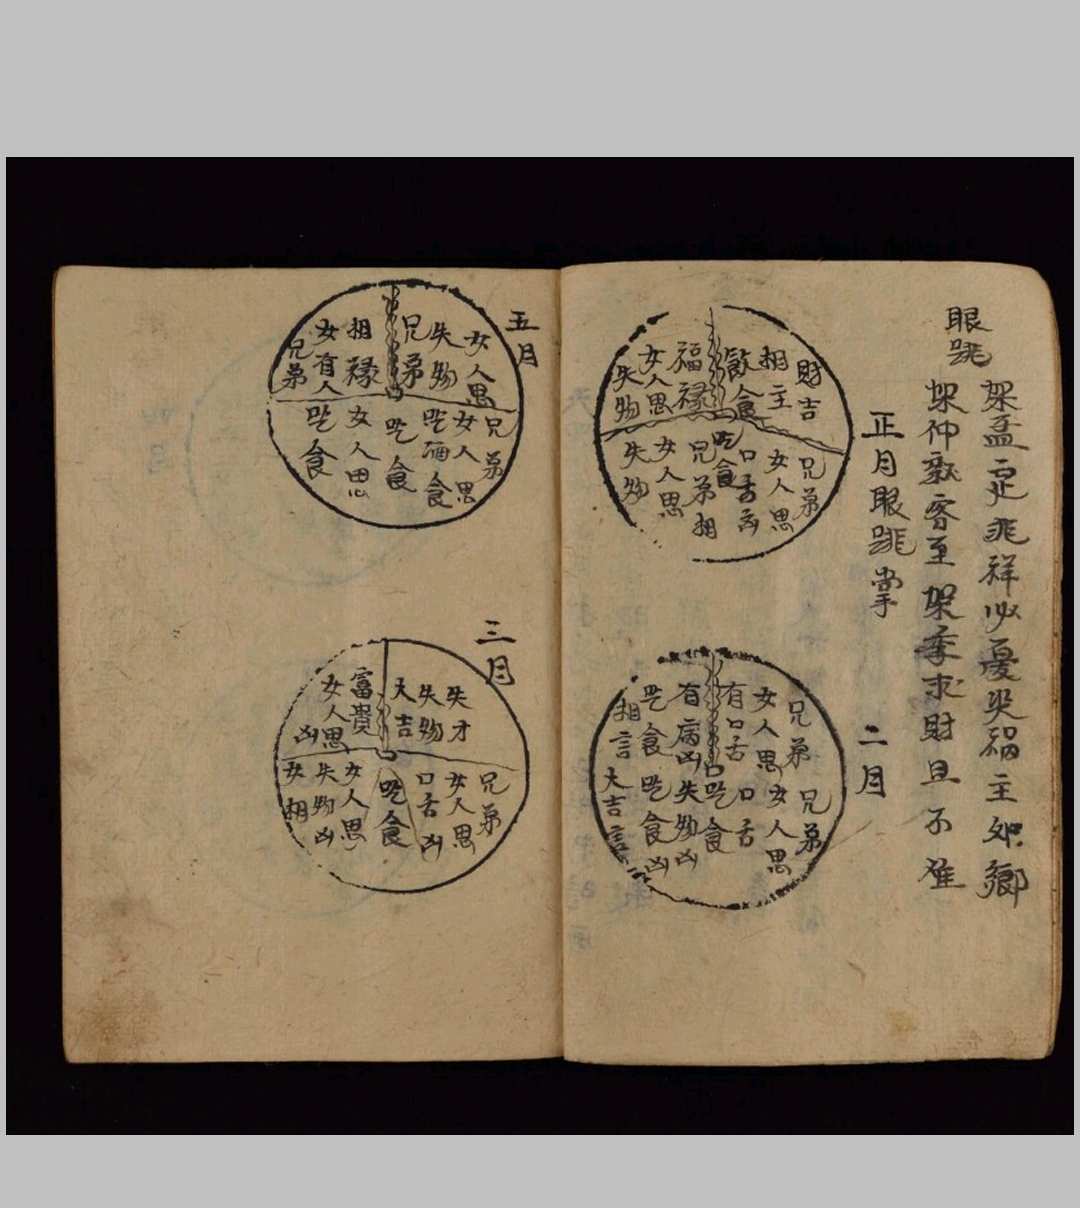 眼跳
架孟 兆祥必憂災禍主如鄉
架仲 客至架季求財且不准
正月眼跳掌
財吉
相主
飲食
福禄
女人思
失物
兄弟
女人思
口舌凶
吃食
兄弟相
女人思
失物
二月
兄弟
女人思
有口舌
有病凶
吃食
相言
兄弟
女人思
口舌
吃食
失物凶
吃食凶
大吉
五月
女人思
失物
兄弟
相禄
女有人
兄弟
兄弟
女人思
吃 食
吃食
女人思
吃食
三月
失才
失物
大吉
富貴
女人思
凶
兄弟
女人思
口舌凶
吃食
女人思
失物凶
女相